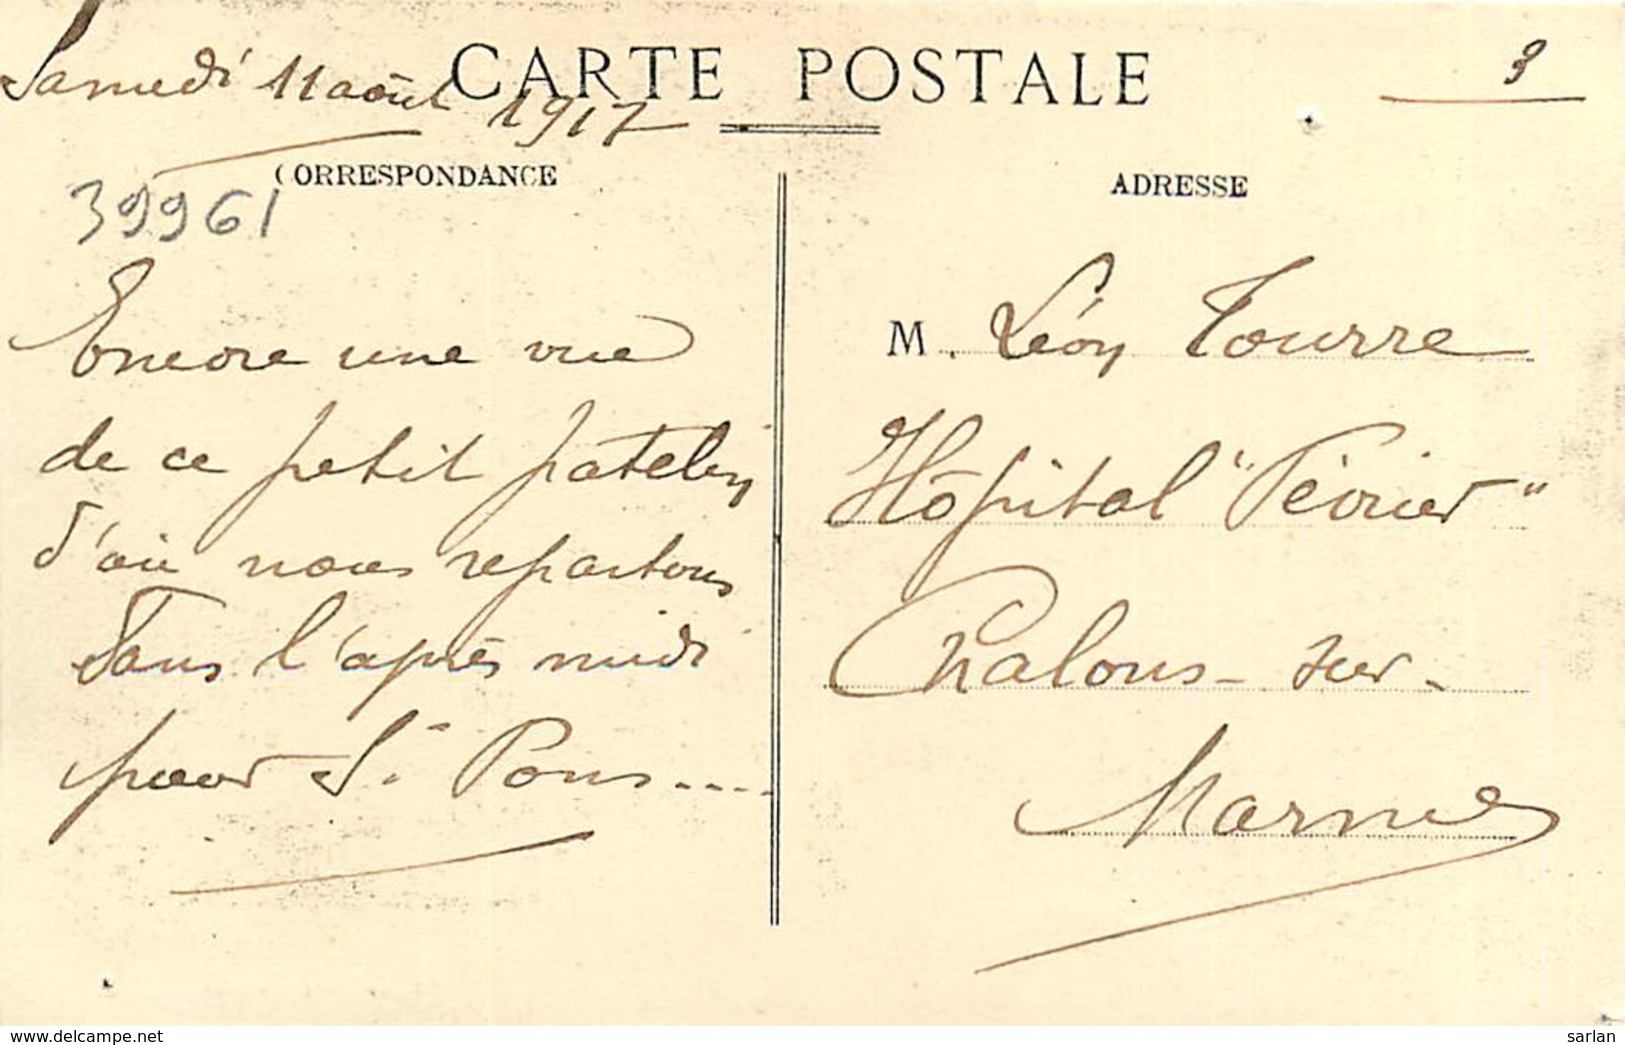 Samedi 11 août 1917
CARTE POSTALE
3
CORRESPONDANCE
39961
Encore une vue
de ce petit patelin
d'où nous repartons
dans l'après midi
pour St Pons....
ADRESSE
M. Léon Tourre
Hôpital "Février"
Chalons-sur-
Marne
www.delcampe.net
sarlan